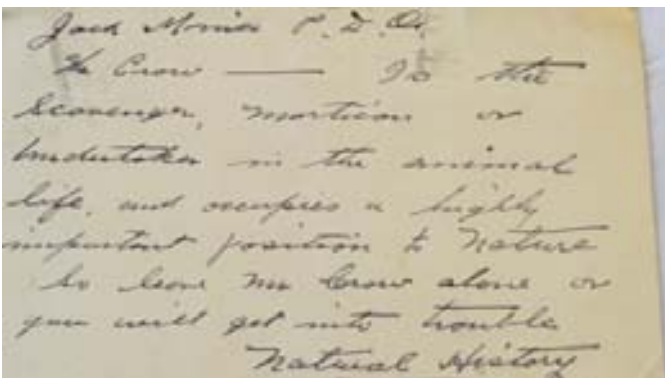 Jack Miner P. D. Q.
The Crow — Is the
Scavenger, Mortician or
Undertaker in the animal
life, and occupies a highly
important position to Nature
So leave Mr Crow alone or
you will get into trouble
Natural History